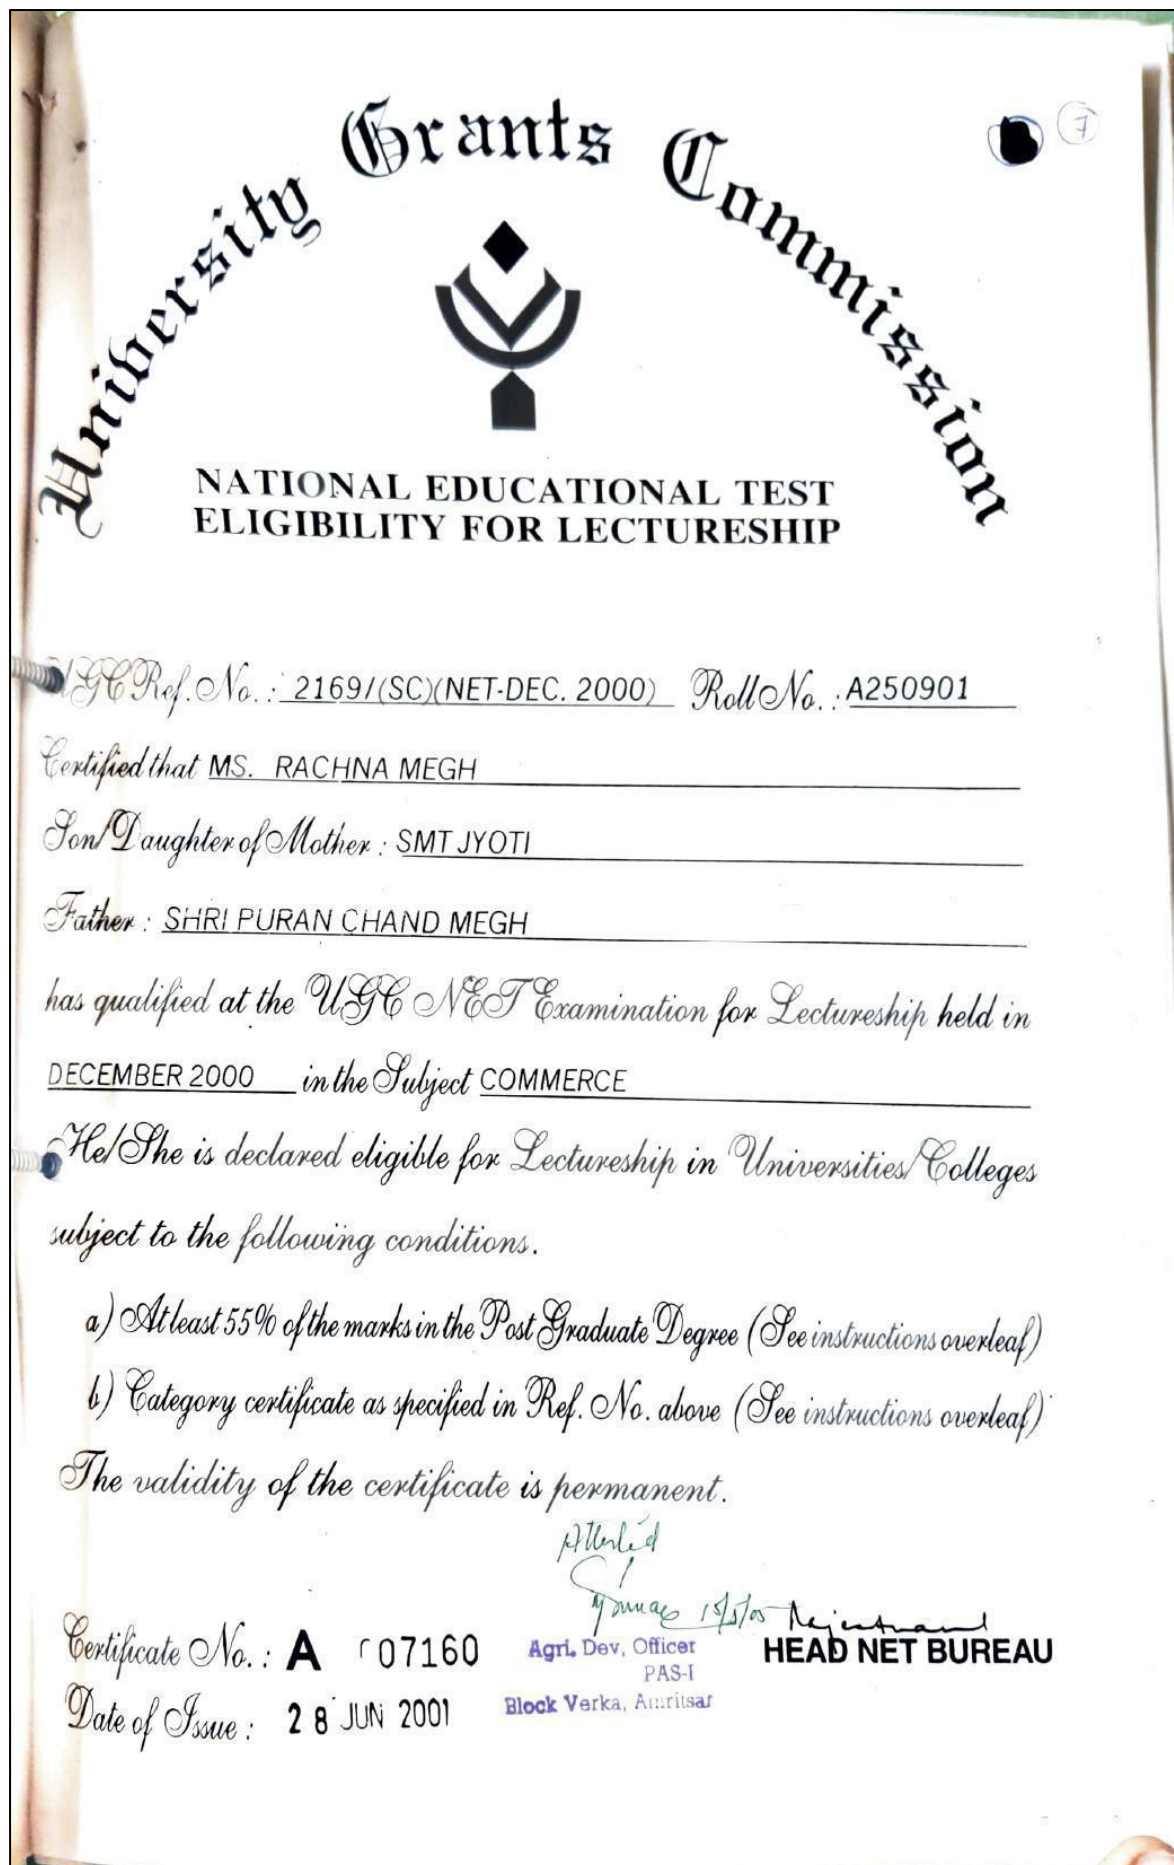 University Grants Commission
7
NATIONAL EDUCATIONAL TEST
ELIGIBILITY FOR LECTURESHIP
UGC Ref. No. : 2169/(SC)(NET-DEC. 2000) Roll No. : A250901
Certified that MS. RACHNA MEGH
Son/Daughter of Mother : SMT JYOTI
Father : SHRI PURAN CHAND MEGH
has qualified at the UGC NET Examination for Lectureship held in
DECEMBER 2000 in the Subject COMMERCE
He/She is declared eligible for Lectureship in Universities/Colleges
subject to the following conditions.
a) Atleast 55% of the marks in the Post Graduate Degree (See instructions overleaf)
b) Category certificate as specified in Ref. No. above (See instructions overleaf)
The validity of the certificate is permanent.
Attested
15/5/05
Certificate No. : A 07160 Agri. Dev, Officer HEAD NET BUREAU
PAS-I
Date of Issue : 28 JUN 2001 Block Verka, Amritsar